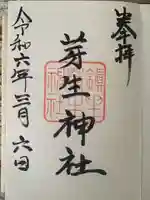 奉拝
芽生神社
令和六年三月六日